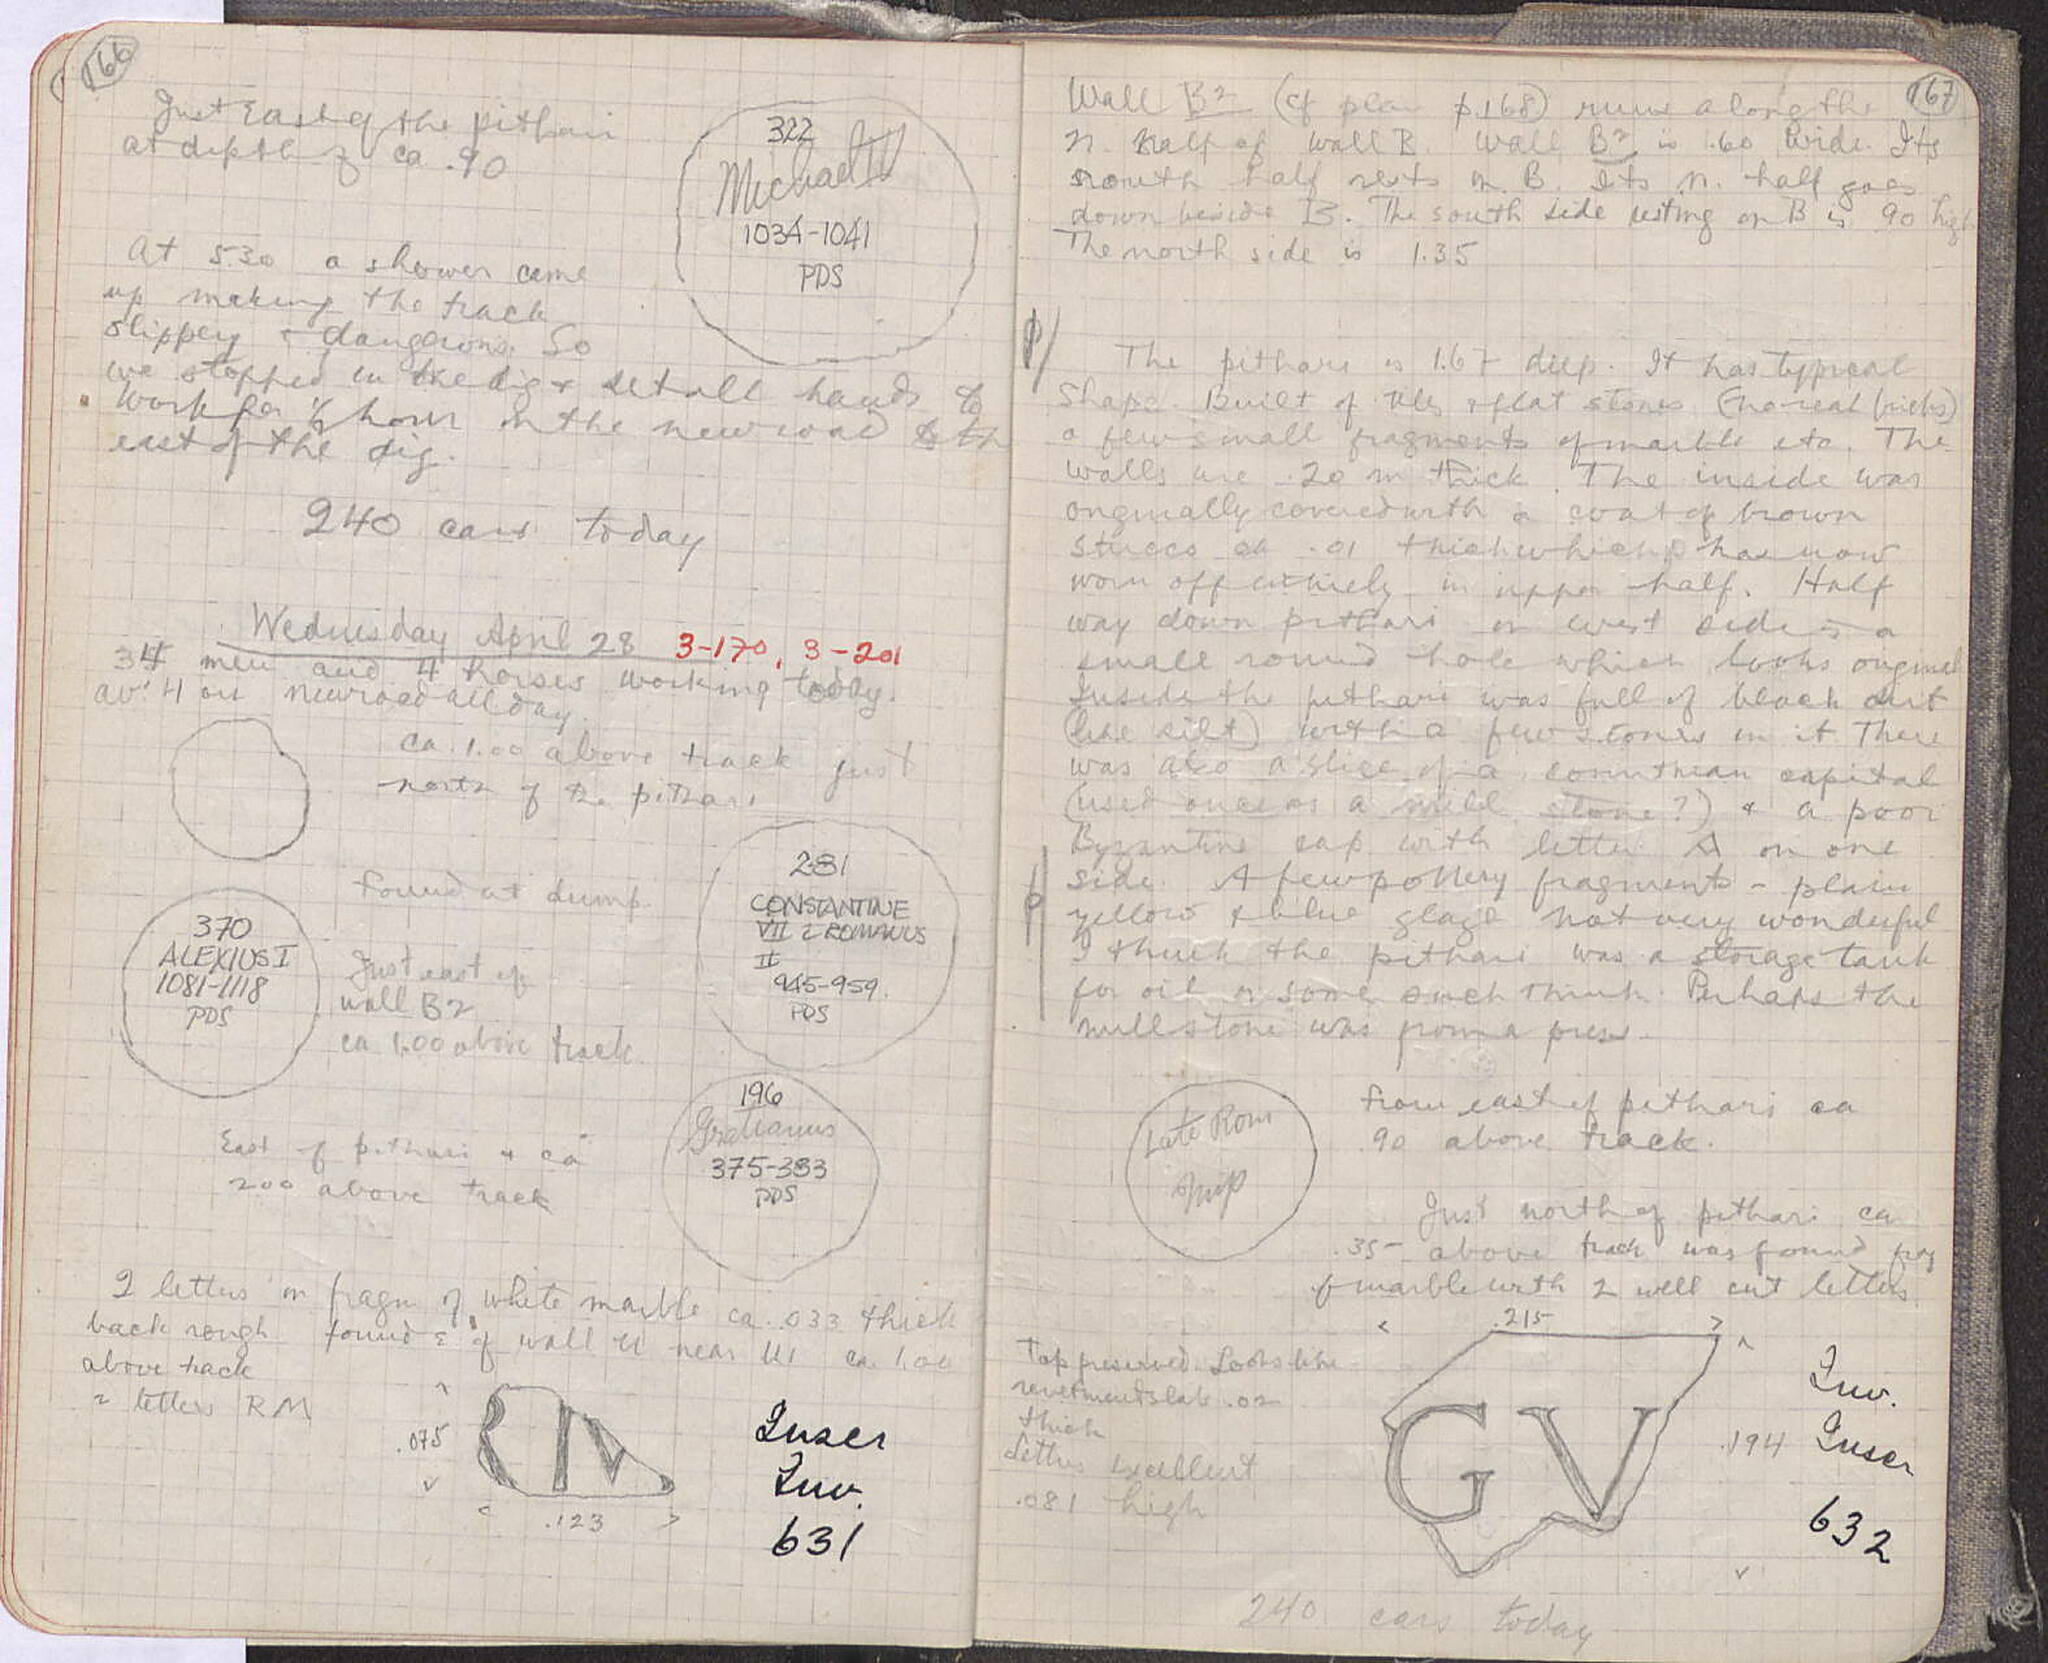 166
Just East of the pithari
at depth of ca .90
322
Michael IV
1034-1041
PDS
At 5.30 a shower came
up making the track
slippery & dangerous. So
we stopped in the dig & set all hands to
work for ½ hour on the new road to the
east of the dig.
240 cars today
Wednesday April 28 3-170, 3-201
34 men and 4 horses working today.
4 on new road all day.
ca. 1.00 above track just
north of the pithari
found at dump
281
CONSTANTINE
VII & ROMANUS
II
945-959.
PDS
370
ALEXIUS I
1081-1118
PDS
Just east of
wall B2
ca 1.00 above track.
196
Gratianus
375-383
PDS
East of pithari & ca
200 above track
2 letters on fragm of white marble ca. .033 thick
back rough found E of wall U near U1 ca 1.00
above track
2 letters RM
.075
.123
Inscr
Inv.
631
167
Wall B2 (cf plan p.168) runs along the
n. half of wall B. Wall B2 is .60 wide. Its
south half rests on B. Its n. half goes
down beside B. The south side resting on B is .90 high
The north side is 1.35
The pithari is 1.67 deep. It has typical
shape. Built of tiles & flat stones (no real bricks)
a few small fragments of marble etc. The
walls are .20 m thick. The inside was
originally covered with a coat of brown
stucco ca .01 thick which has now
worn off entirely in upper half. Half
way down pithari on west side is a
small round hole which looks original
Inside the pithari was full of black dirt
(like silt) with a few stones in it There
was also a slice of a corinthian capital
(used once as a mill stone?) & a poor
Byzantine cap with letter A on one
side. A few pottery fragments - plain
yellow & blue glaze not very wonderful
I think the pithari was a storage tank
for oil or some such think. Perhaps the
millstone was from a press.
Late Rom
from east of pithari ca
.90 above track.
Just north of pithari ca
.35 above track was found frag
of marble with 2 well cut letters.
Top preserved. Looks like
revetment slab .02
thick
letters excellent
.081 high
.215
GV
.194
Inv.
Inscr
632
240 cars today